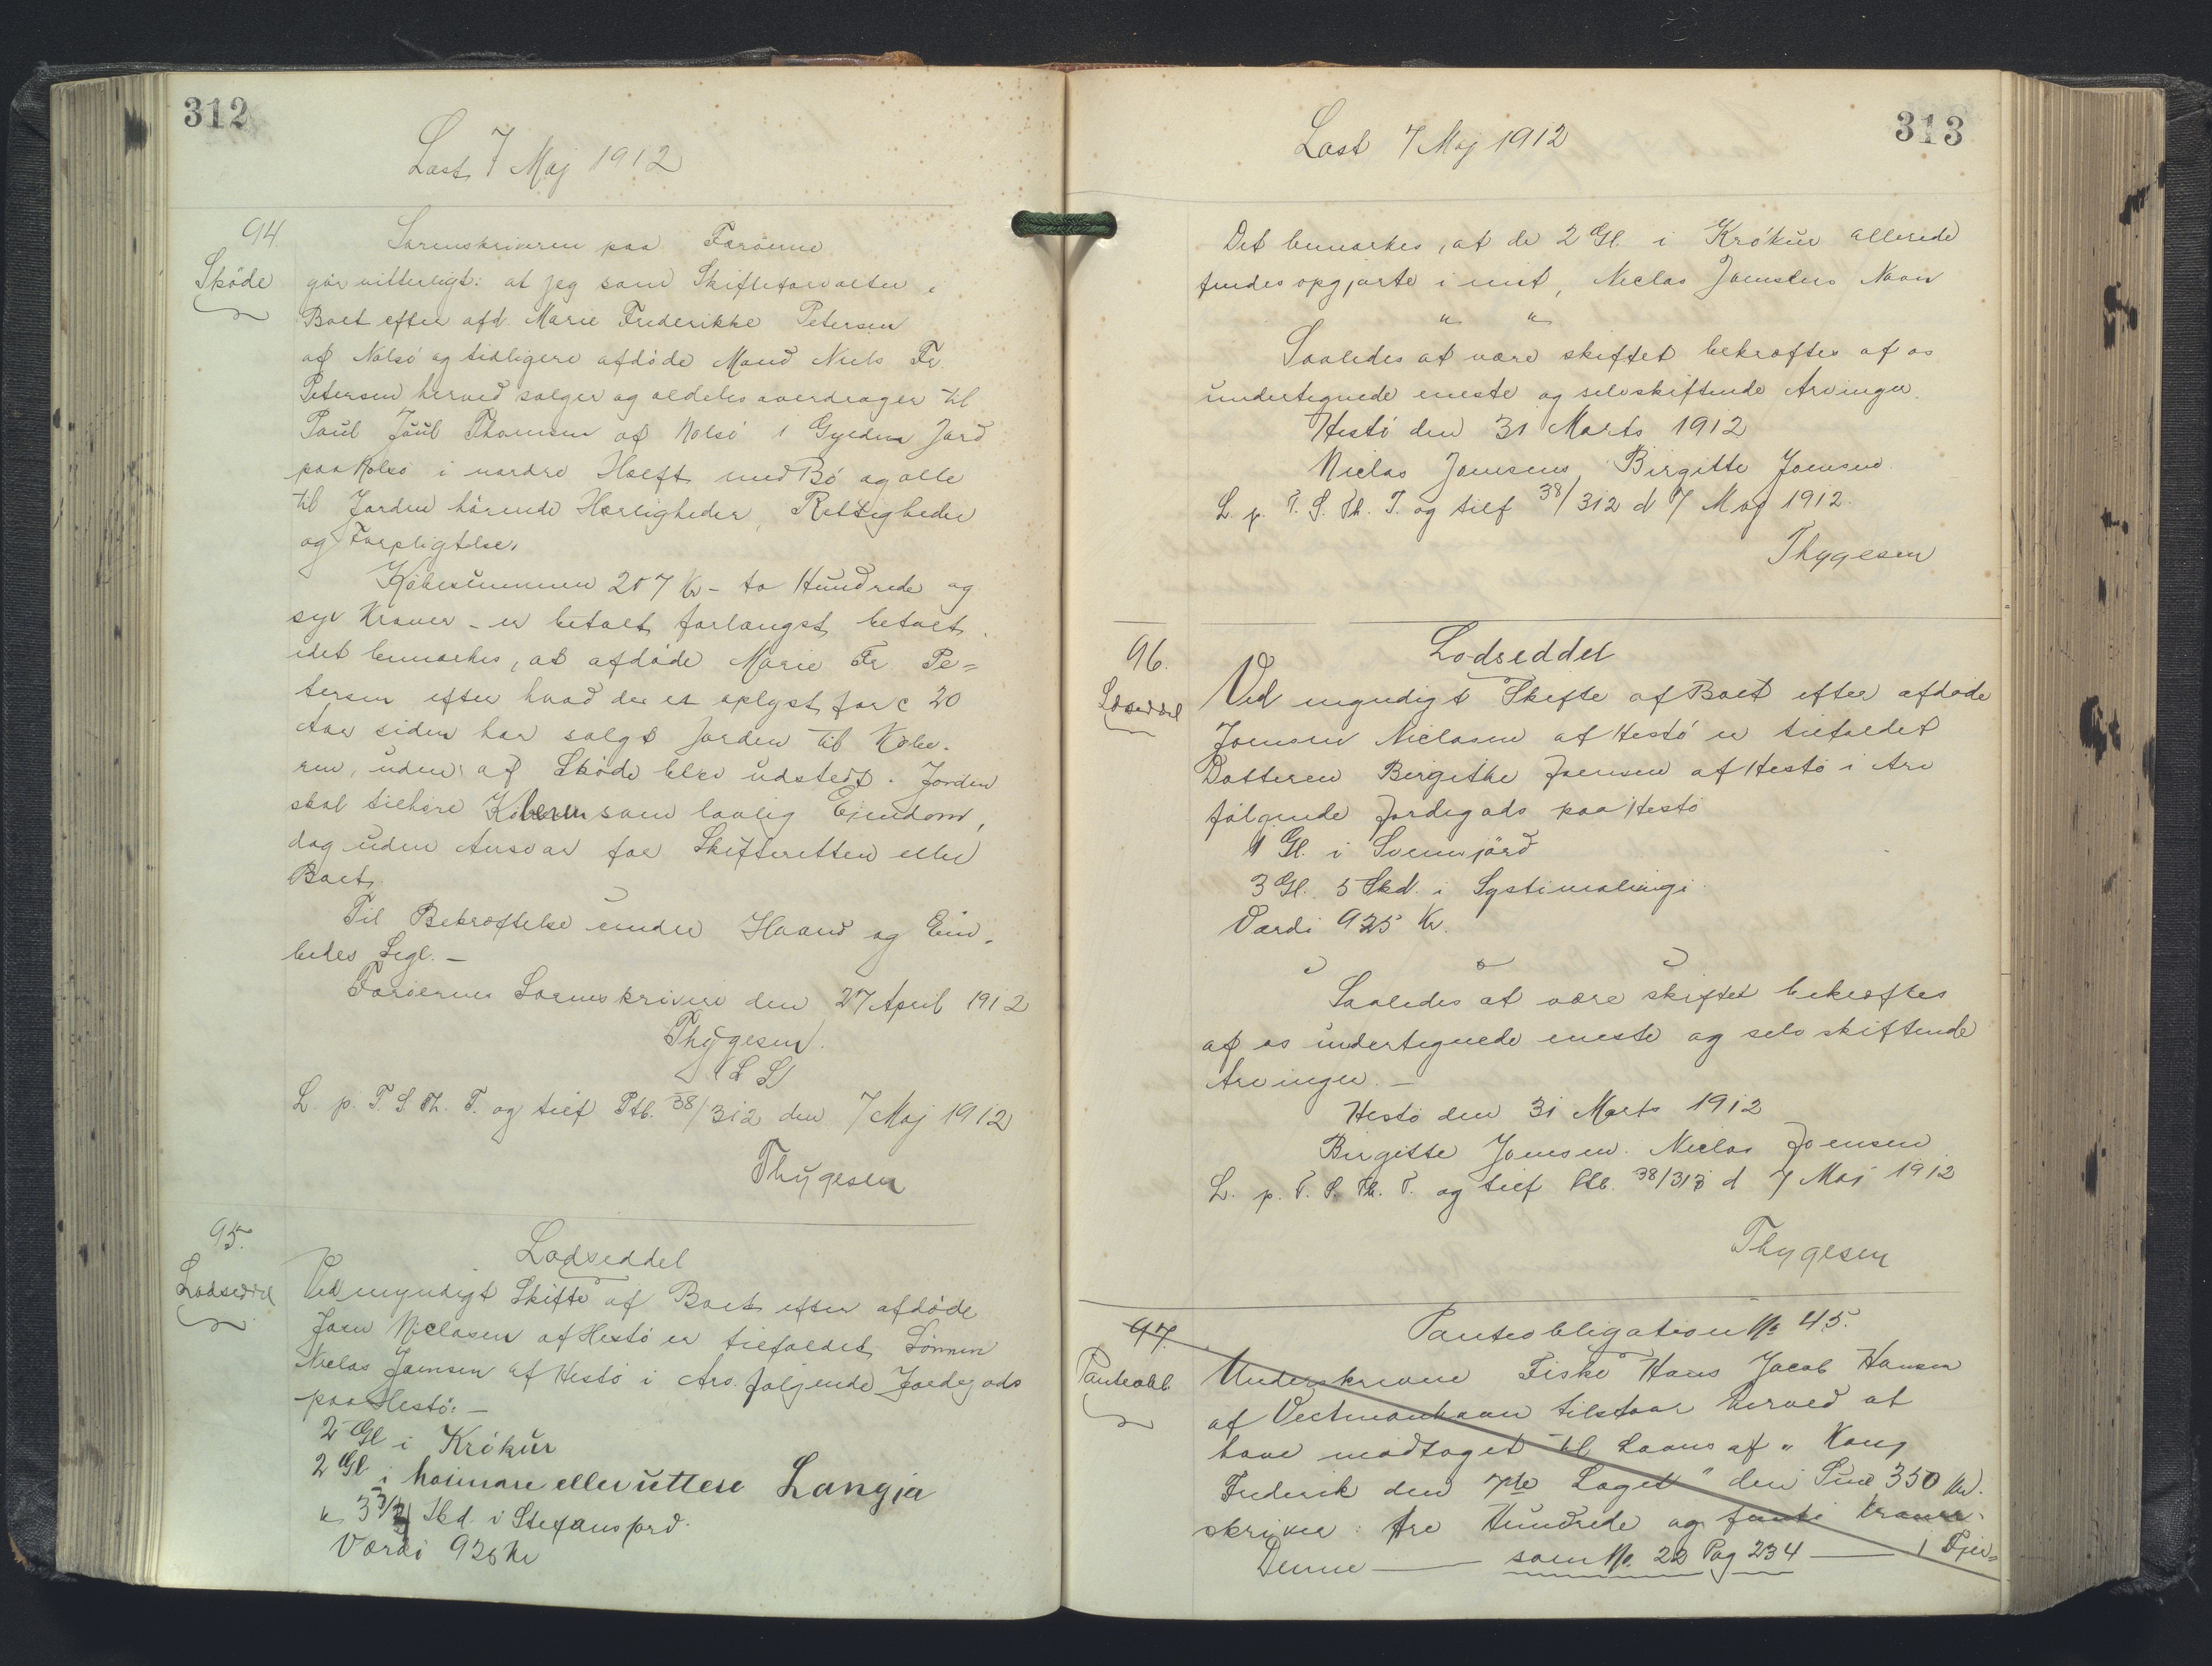 312
Læst 7 Maj 1912
94.
Skøde
Sorenskriveren paa Færøerne
gør vitterligt: at jeg som Skifteforvalter i
Boet efter afd. Marie Frederikke Petersen
af Nolsø og tidligere afdøde Mand Niels Fr
Petersen herved sælger og aldeles overdrager til
Poul Juul Thomsen af Nolsø 1 Gylden Jord
paa Nolsø i nordre Hælft med Bø og alle
til Jorden hørende Herligheder, Rettigheder
og Forpligtelser.
Købesummen 207 Kr - to Hundrede og
syv Kroner - er betalt forlængst betalt
idet bemærkes, at afdøde Marie Fr. Pe=
tersen efter hvad der er oplyst for c 20
Aar siden har solgt Jorden til Købe-
ren, uden at Skøde blev udstedt. Jorden
skal tilhøre Køberen som lovlig Ejendom,
dog uden Ansvar for Skifteretten eller
Boet.
Til Bekræftelse under Haand og Em-
bedes Segl. -
Færøernes Sorenskriveri den 27 April 1912
Thygesen.
(L S)
L. p. T. S. Th. T. og tilf Ptb. 38/312 den 7 Maj 1912
Thygesen
95.
Lodseddel
Lodseddel
Ved myndigt Skifte af Boet efter afdøde
Joen Niclasen af Hestø er tilfaldet Sønnen
Niclas Joensen af Hestø i Arv følgende Jordegods
paa Hestø: -
2 Gl i Krókur
2 Gl i heimare eller uttere Langja
Skd. i Stefansjord.
Værdi 925 Kr
313
Læst 7 Maj 1912
Det bemærkes, at de 2 Gl. i Krókur allerede
findes opgjorte i mit, Niclas Joensens Navn
" "
Saaledes at være skiftet bekræftes af os
undertegnede eneste og selvskiftende Arvinger.
Hestø den 31 Marts 1912
Niclas Joensen, Birgitte Joensen.
L. p. T. S. Th. T. og tilf 38/312 d 7 Maj 1912.
Thygesen
96.
Lodseddel
Lodseddel
Ved myndigt Skifte af Boet efter afdøde
Joensen Niclasen af Hestø er tilfaldet
Datteren Birgithe Joensen af Hestø i Arv
følgende Jordegods paa Hestø
1 Gl. i Svennjørd
3 Gl. 5 Skd. i Systimalingi.
Værdi 925 Kr.
Saaledes at være skiftet bekræftes
af os undertegnede eneste og selvskiftende
Arvinger. -
Hestø den 31 Marts 1912
Birgitte Joensen. Niclas Joensen
L. p. T. S. Th. T. og tilf Ptb. 38/313 d 7 Maj 1912
Thygesen
97.
Panteobl
Panteobligation No 45.
Underskrevne Fisker Hans Jacob Hansen
af Vestmanhavn tilstaar herved at
have modtaget til Laans af "Kong
Frederik den 7de Laget" den Sum 350 Kr.
skriver: tre Hundrede og femti Kroner.
Denne —— som No. 22 Pag 234 —— i Fjer=